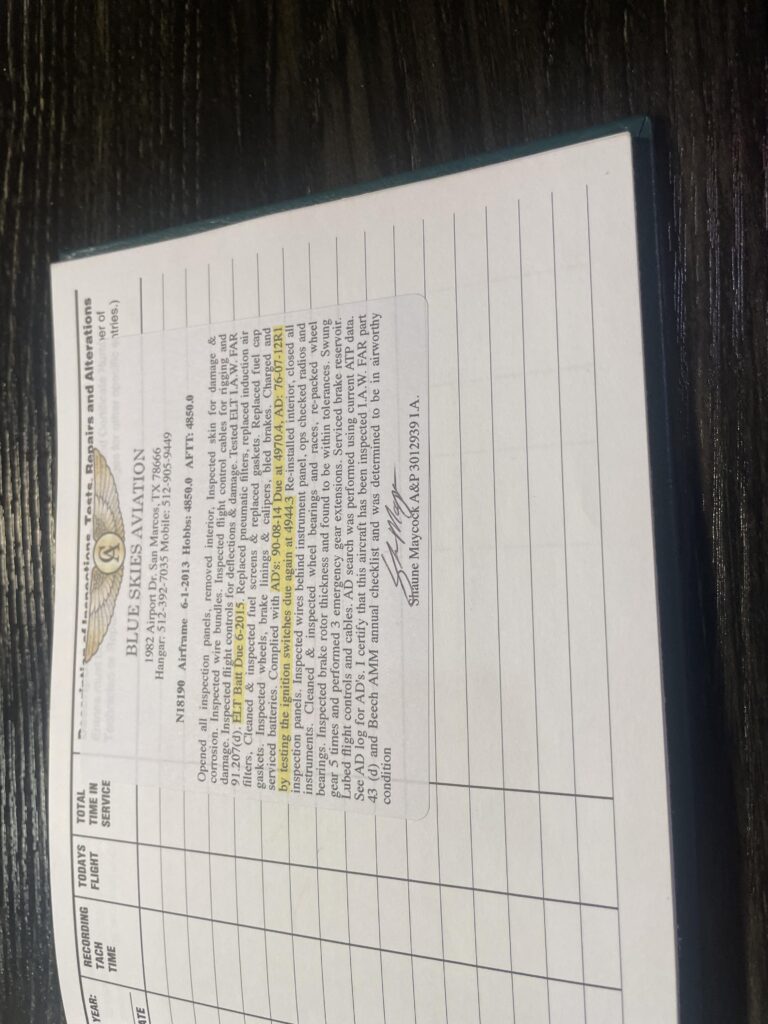 YEAR:
RECORDING
TACH
TIME
TODAYS
FLIGHT
TOTAL
TIME IN
SERVICE
Description of Inspections, Tests, Repairs and Alterations
ntries.)
ATE
CA
BLUE SKIES AVIATION
1982 Airport Dr. San Marcos, TX 78666
Hangar: 512-392-7035 Mobile: 512-905-9449
N18190 Airframe 6-1-2013 Hobbs: 4850.0 AFTT: 4850.0
Opened all inspection panels, removed interior. Inspected skin for damage &
corrosion. Inspected wire bundles. Inspected flight control cables for rigging and
damage. Inspected flight controls for deflections & damage. Tested ELT I.A.W. FAR
91.207(d). ELT Batt Due 6-2015. Replaced pneumatic filters, replaced induction air
filters, Cleaned & inspected fuel screens & replaced gaskets. Replaced fuel cap
gaskets. Inspected wheels, brake linings & calipers, bled brakes. Charged and
serviced batteries. Complied with AD's: 90-08-14 Due at 4970.4, AD: 76-07-12R1
by testing the ignition switches due again at 4944.3 Re-installed interior, closed all
inspection panels. Inspected wires behind instrument panel, ops checked radios and
instruments. Cleaned & inspected wheel bearings and races, re-packed wheel
bearings. Inspected brake rotor thickness and found to be within tolerances. Swung
gear 5 times and performed 3 emergency gear extensions. Serviced brake reservoir.
Lubed flight controls and cables. AD search was performed using current ATP data.
See AD log for AD's. I certify that this aircraft has been inspected I.A.W. FAR part
43 (d) and Beech AMM annual checklist and was determined to be in airworthy
condition
Shaune Maycock A&P 3012939 I.A.